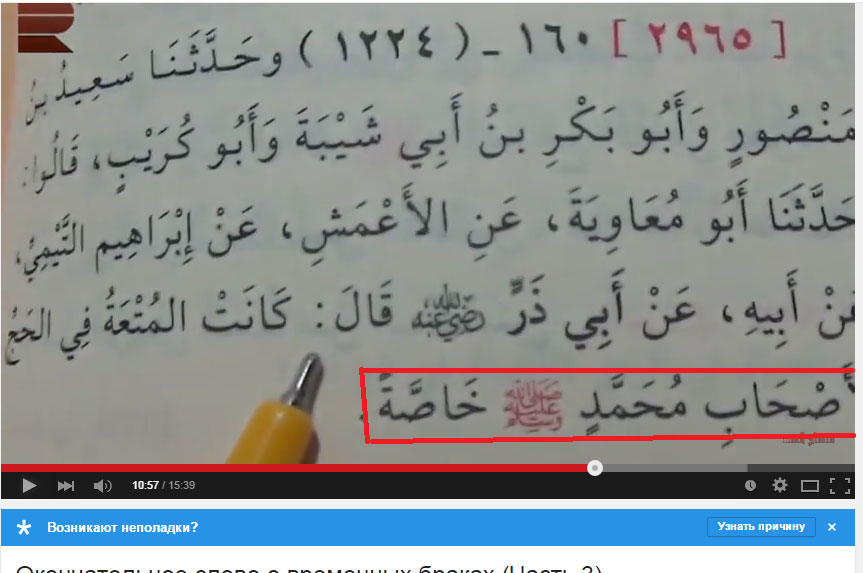 [ ٢٩٦٥ ] ١٦٠ - ( ١٢٢٤ ) وحَدَّثَنَا سَعِيدُ بنُ
مَنْصُورٍ وَأَبُو بَكْرِ بنُ أَبِي شَيْبَةَ وَأَبُو كُرَيْبٍ، قَالُوا:
حَدَّثَنَا أَبُو مُعَاوِيَةَ، عَنِ الأَعْمَشِ، عَنْ إِبْرَاهِيم التَّيْمِيِّ،
عَنْ أَبِيهِ، عَنْ أَبِي ذَرٍّ رَضِيَ اللهُ عَنْهُ قَالَ: كَانَتْ المُتْعَةُ فِي الحَجِّ
لأَصْحَابِ مُحَمَّدٍ ﷺ خَاصَّةً.
10:57 / 15:39
Возникают неполадки?
Узнать причину ×
Окончательное слово о временных браках (Часть 3)